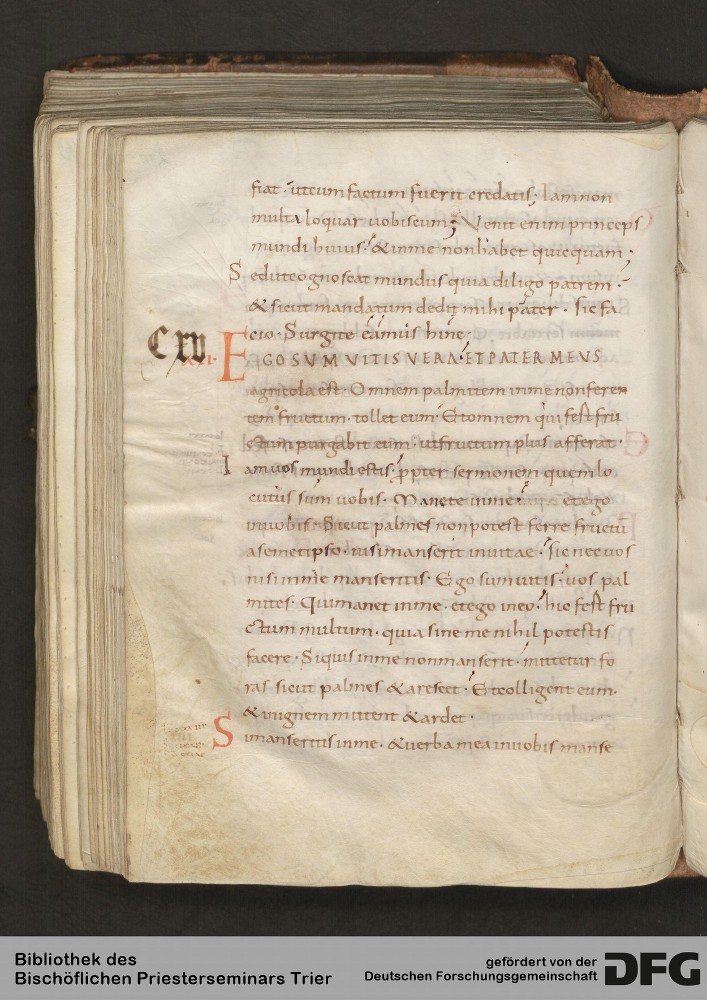 fiat · ut cum factum fuerit credatis ; Iam non
multa loquar uobiscum ; Venit enim princeps
mundi huius · & in me non habet quicquam ;
Sed ut cognoscat mundus quia diligo patrem ·
& sicut mandatum dedit mihi pater · sic fa
cio · Surgite eamus hinc ·
CXV EGO SUM VITIS VERA · ET PATER MEVS
agricola est · Omnem palmitem in me non feren
tem fructum · tollet eum · Et omnem qui fert fru
ctum purgabit eum · ut fructum plus afferat ·
Iam uos mundi estis · ppter sermonem quem lo
cutus sum uobis · Manete in me · et ego
in uobis · Sicut palmes non potest ferre fructū
a semetipso · nisi manserit in uitae · sic nec uos
nisi in me manseritis · Ego sum uitis · uos pal
mites · Qui manet in me · et ego in eo · hic fert fru
ctum multum · quia sine me nihil potestis
facere · Si quis in me non manserit · mittetur fo
ras sicut palmes & arescet · Et colligent eum ·
& in ignem mittent & ardet ·
Si manseritis in me · & uerba mea in uobis manse
Bibliothek des
Bischöflichen Priesterseminars Trier
gefördert von der
Deutschen Forschungsgemeinschaft
DFG